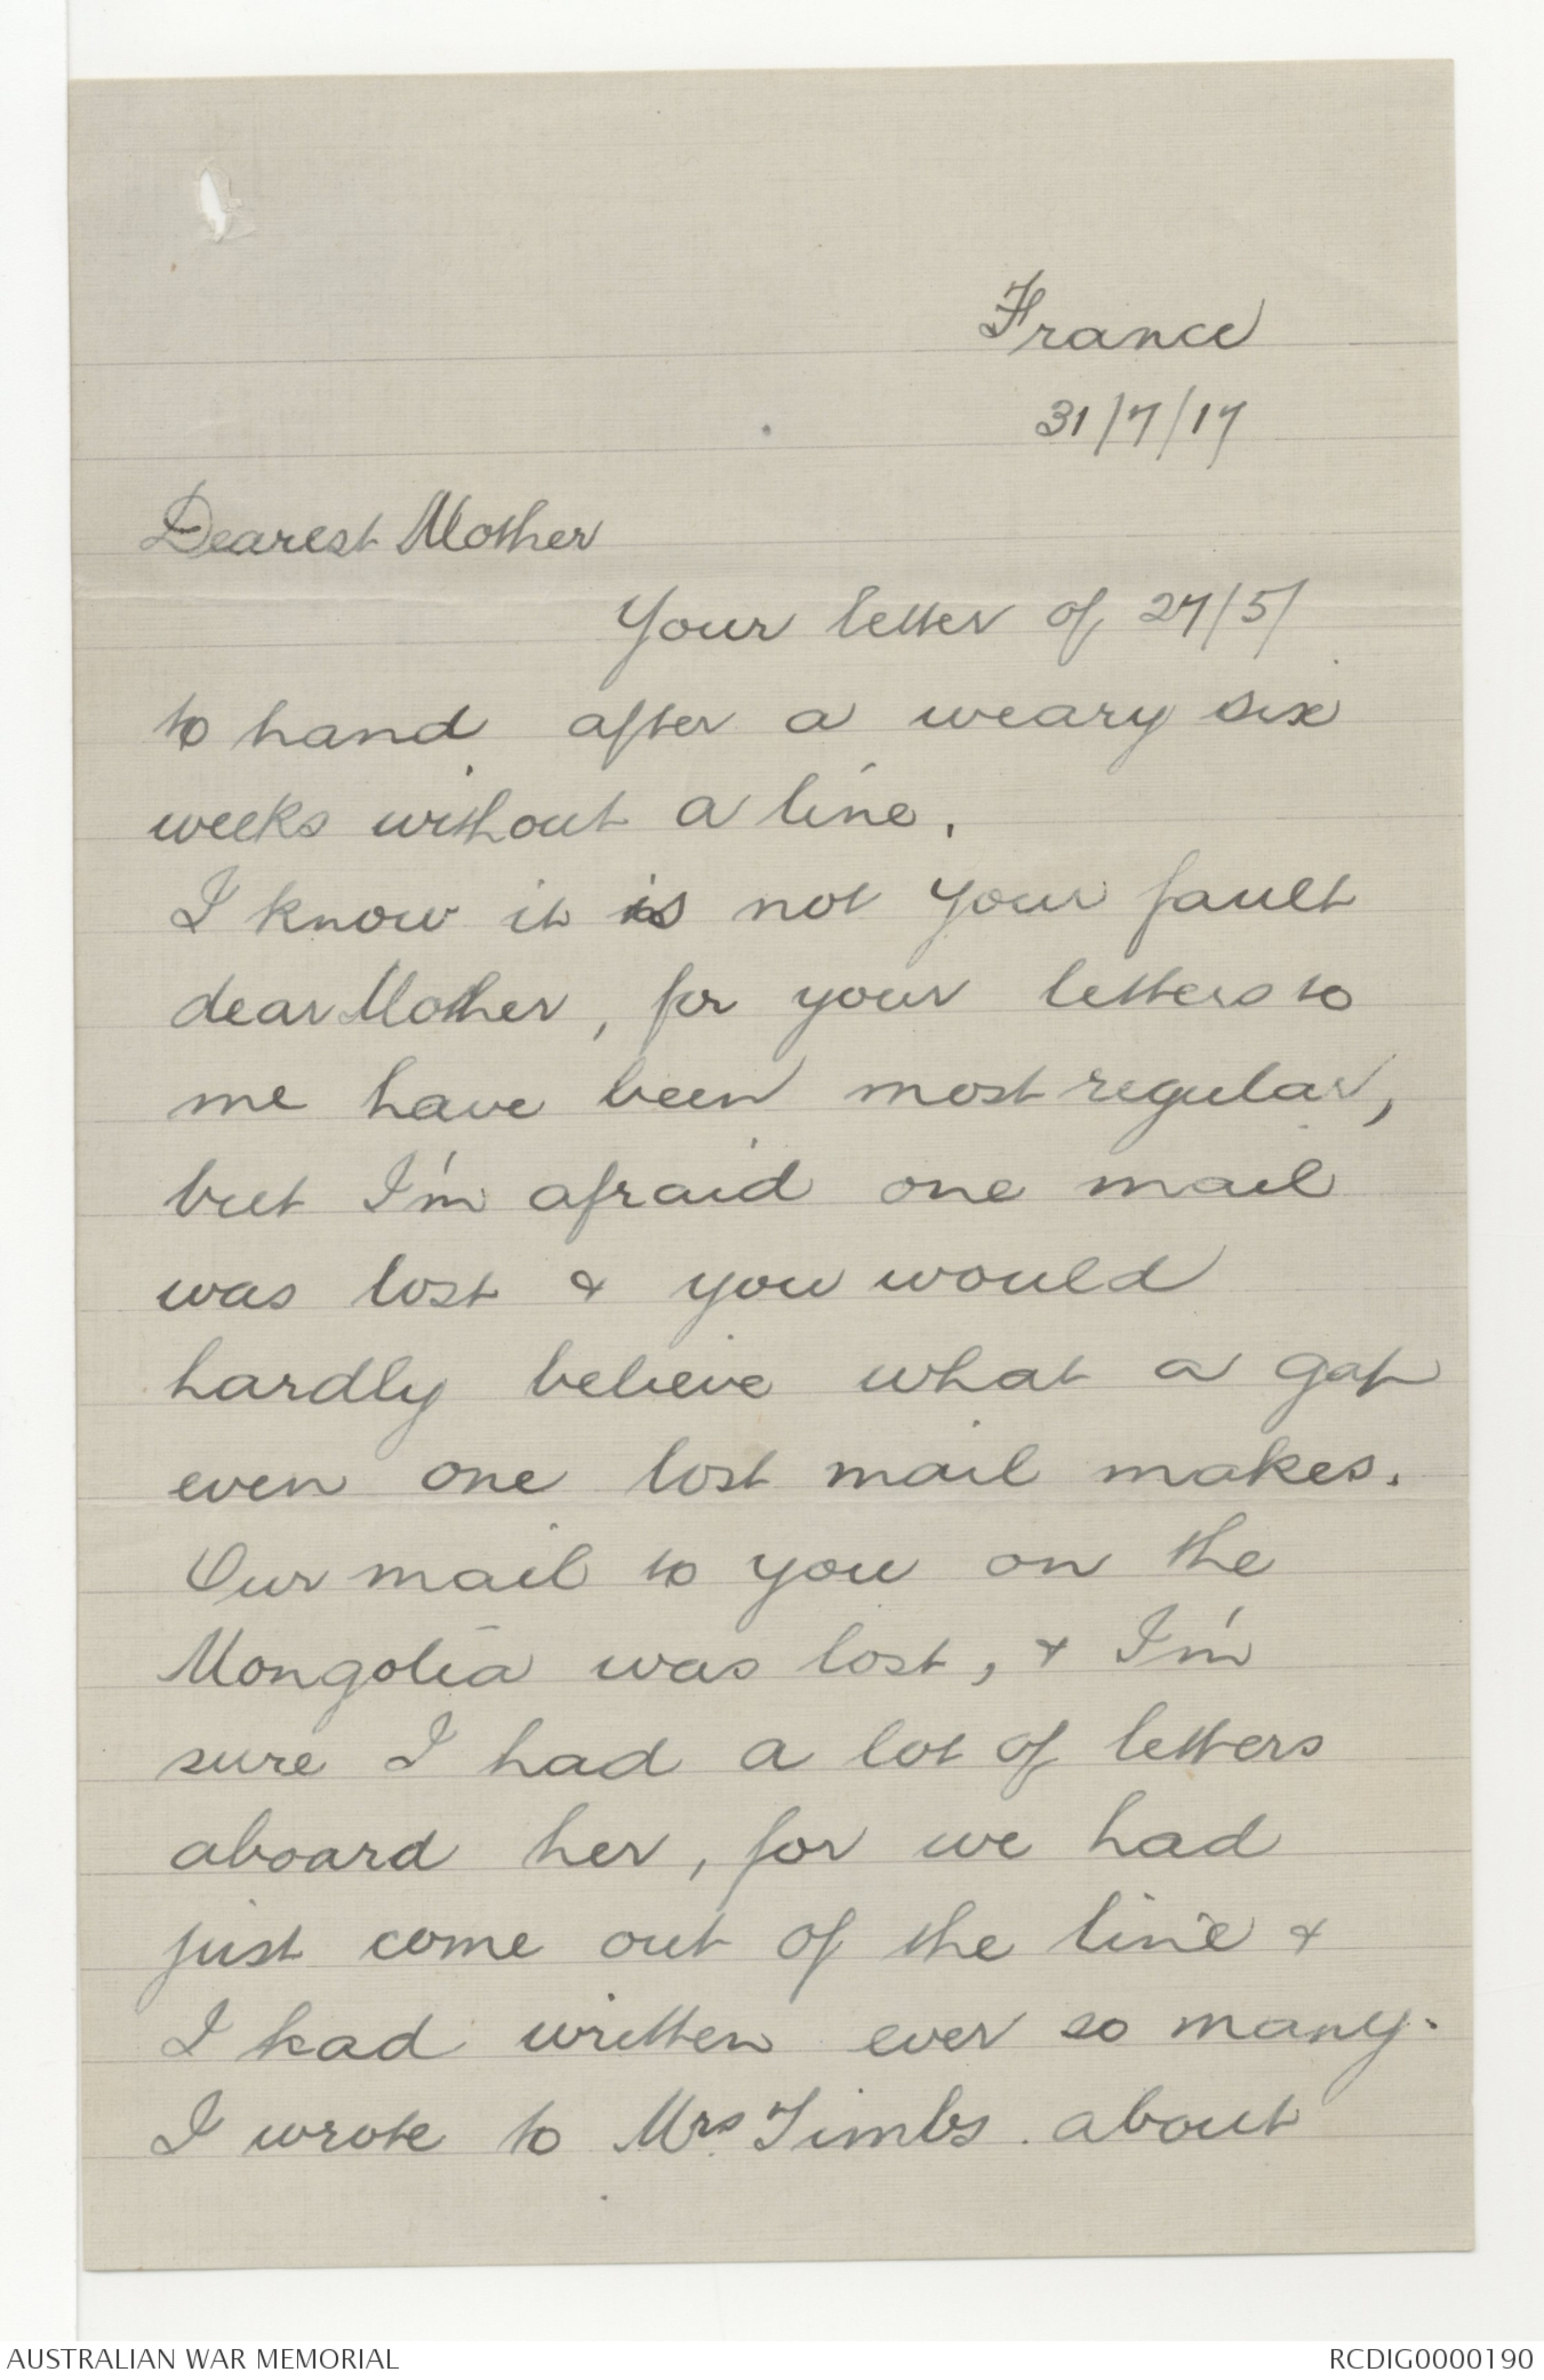 France
31/7/17
Dearest Mother
Your letter of 27/5/
to hand after a weary six
weeks without a line.
I know it is not your fault
dear Mother, for your letters to
me have been most regular,
but I'm afraid one mail
was lost & you would
hardly believe what a gap
even one lost mail makes.
Our mail to you on the
Mongolia was lost, & I'm
sure I had a lot of letters
aboard her, for we had
just come out of the line &
I had written ever so many.
I wrote to Mrs Timbs. about
AUSTRALIAN WAR MEMORIAL
RCDIG0000190